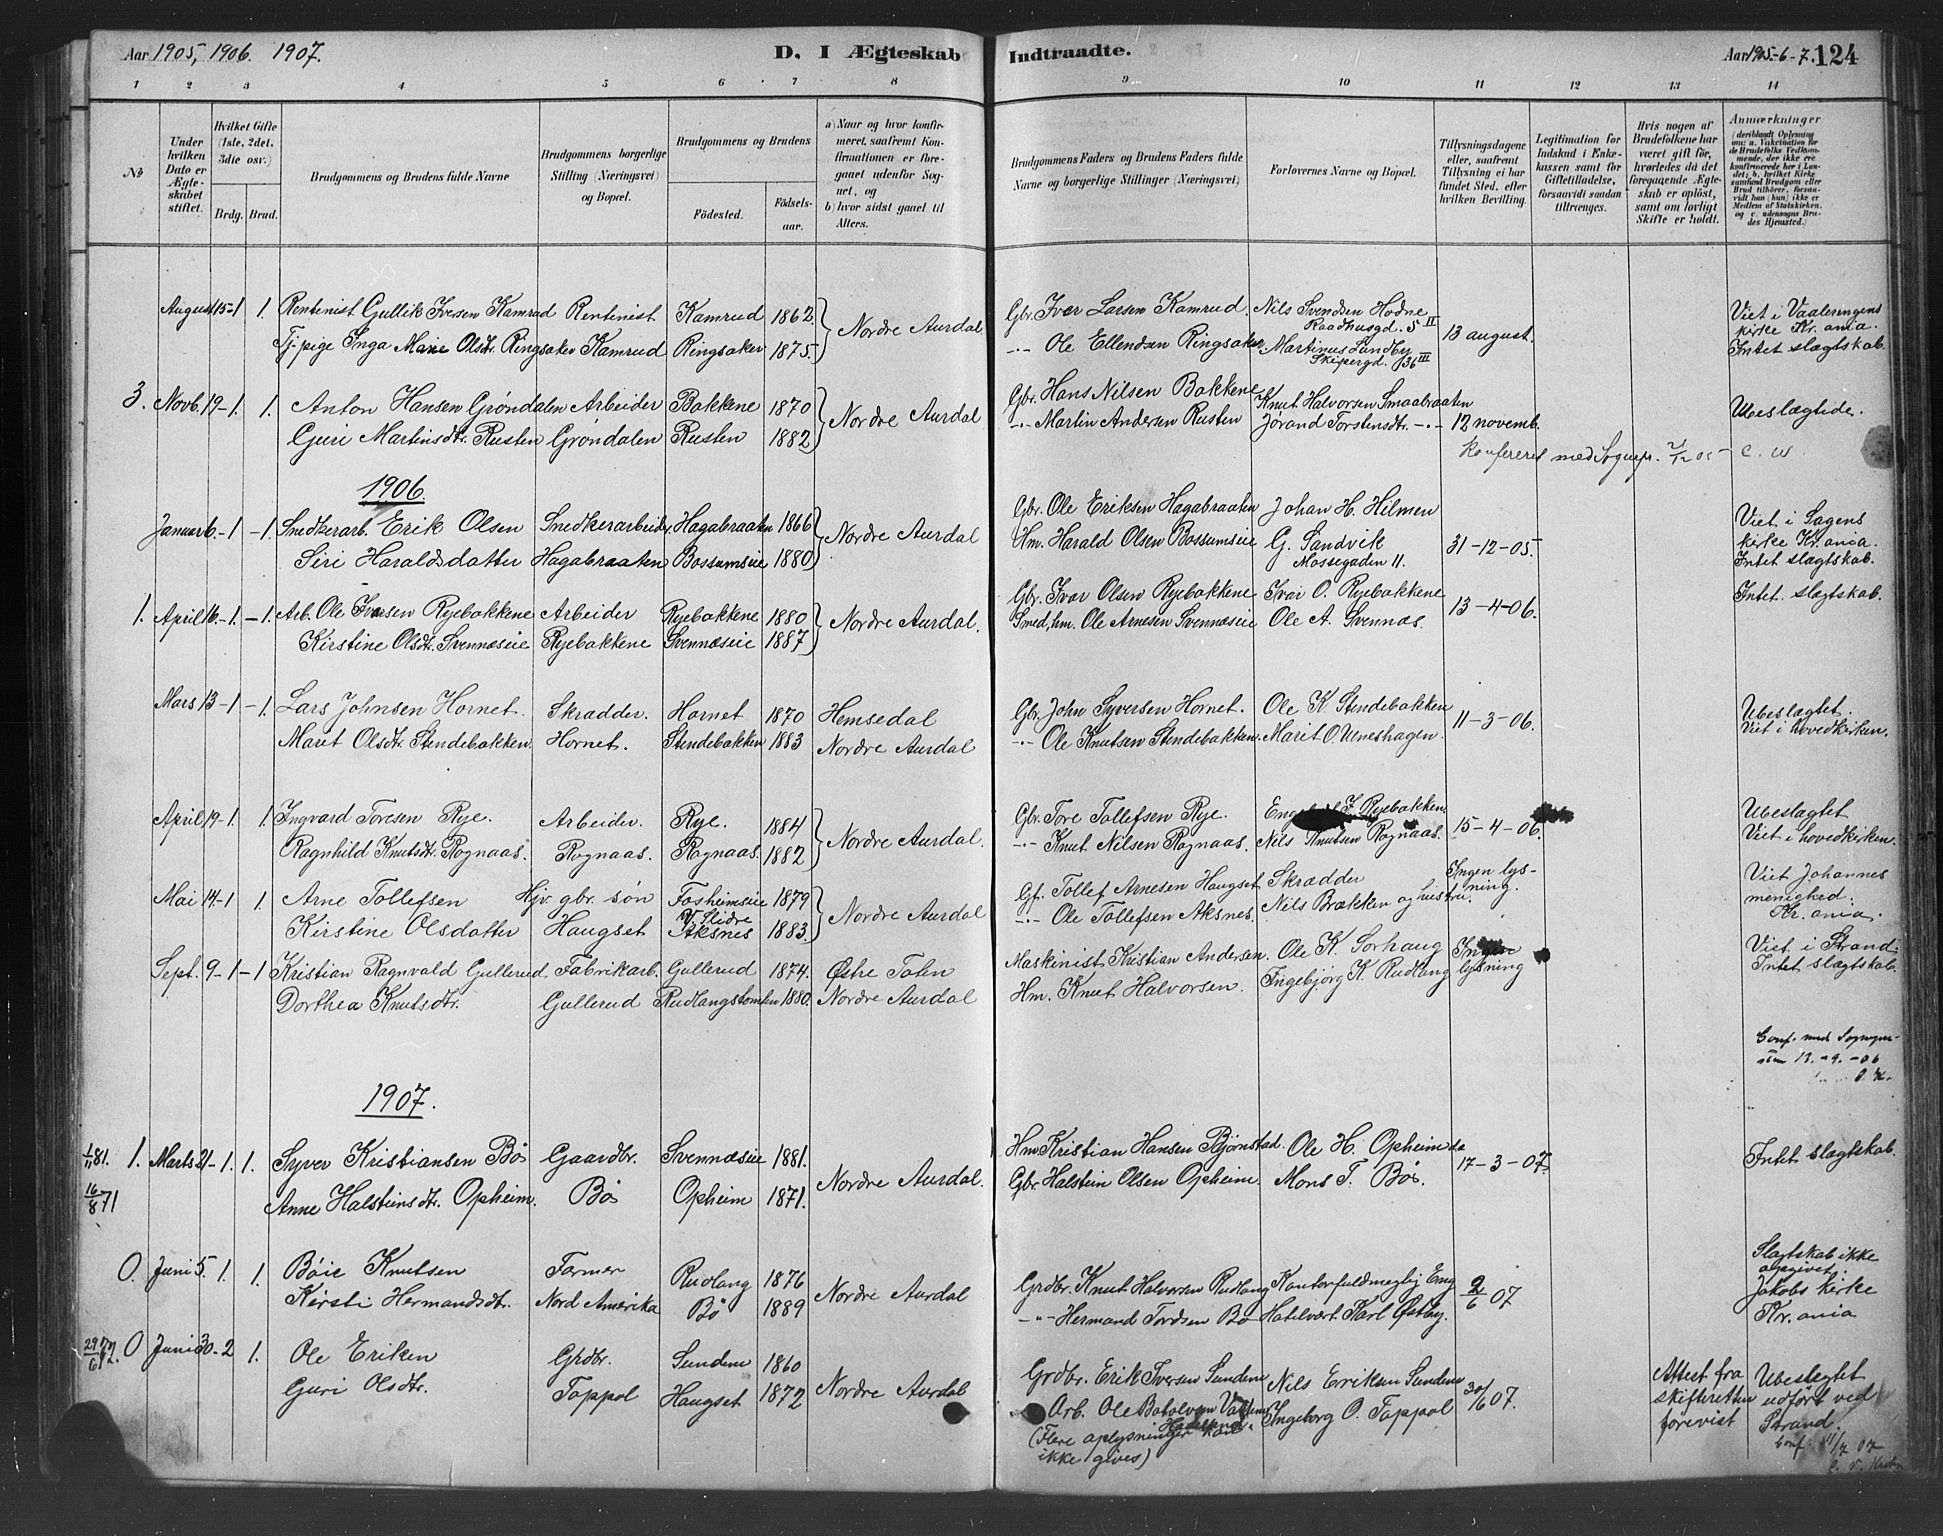 Aar 1905, 1906. 1907.
D. I Ægteskab Indtraadte.
Aar 1905-6-7. 124
1 2 3 4 5 6 7 8 9 10 11 12 13 14
No
Under hvilken Dato er Ægteskabet stiftet.
Hvilket Gifte (1ste, 2det, 3die osv.)
Brdg. Brud.
Brudgommens og Brudens fulde Navne
Brudgommens borgerlige Stilling (Næringsvei) og Bopæl.
Brudgommens og Brudens
Fødested.
Fødselsaar.
a) Naar og hvor konfirmeret, saafremt Konfirmationen er foregaaet udenfor Sognet, og
b) hvor sidst gaaet til Alters.
Brudgommens Faders og Brudens Faders fulde Navne og borgerlige Stillinger (Næringsvei)
Forlovernes Navne og Bopæl.
Tillysningsdagene eller, saafremt Tillysning ei har fundet Sted, efter hvilken Bevilling.
Legitimation for Indskud i Enkekassen samt for Giftetilladelse, forsaavidt saadan tiltrænges.
Hvis nogen af Brudefolkene har været gift før, hvorledes da det foregaaende Ægteskab er opløst, samt om lovligt Skifte er holdt.
Anmærkninger (deriblandt Oplysning om: a. Vakcination for de Brudefolks Vedkommende, der ikke ere konfirmerede her i Landet; b. hvilket Kirkesamfund Brudgom eller Brud tilhører, forsaavidt han (hun) ikke er Medlem af Statskirken, og c. udensogns Brudes Hjemsted.)
August 15-1 1. Rentenist Gullik Iversen Kamrud Rentenist Kamrud 1862 Nordre Aurdal Gbr. Iver Larsen Kamrud. Nils Svendsen Hodne Raadhusgd. 5 II 13 august. Viet i Vaalerengens kirke Kr.ania.
Tj.pige Inga Marie Olsdtr. Ringsaker Kamrud Ringsaker 1875. -.- Ole Ellendsen Ringsaker Martinus Sandby Skipergd. 36 III Intet slægtskab.
3. Novb. 19-1. 1. Anton Hansen Grøndalen Arbeider Bakkene 1870 Nordre Aurdal Gbr. Hans Nilsen Bakkene Knut Halvorsen Smaabraaten Ubeslægtede.
Guri Martinsdtr. Rusten Grøndalen Rusten 1882 -.- Martin Andersen Rusten Jørand Torstensdtr. -.- 12 novemb.
Konfereret med Sognepr. 2/12 05 - C. W
1906.
Januar 6.-1 -1. Snedkerarb. Erik Olsen Snedkerarbeider Hagabraaten 1866 Nordre Aurdal Gbr. Ole Eriksen Hagabraaten Johan H. Hilmen 31-12-05. Viet i Sagens kirke Kr.ania.
Siri Haraldsdatter Hagabraaten Bossumseie 1880 Hm. Harald Olsen Bossumseie G. Sandvik Mossegaden 11. Intet slægtskab.
1. April 16.-1. -1. Arb. Ole Iversen Ryebakkene Arbeider Ryebakkene 1880 Nordre Aurdal. Gbr. Ivar Olsen Ryebakkene Ivar O. Ryebakkene 13-4-06. Intet slægtskab.
Kirstine Olsdtr. Svennæseie Ryebakkene Svennæseie 1887 Smed, hm. Ole Arnesen Svennæseie Ole A. Svennæs.
Mars 13-1 -1. Lars Johnsen Hornet. Skrædder. Hornet 1870 Hemsedal Gbr. John Syversen Hornet. Ole K. Stendebakken 11-3-06. Ubeslægtet.
Marit Olsdtr. Stendebakken. Hornet. Stendebakken 1883 Nordre Aurdal -.- Ole Knutsen Stendebakken. Marit O. Ulneshagen. Viet i hovedkirken.
April 19-1. 1. Ingvard Toresen Rye. Arbeider. Rye. 1884 Nordre Aurdal. Gbr. Tore Tollefsen Rye. I. Ryebakken 15-4-06. Ubeslægtet
Ragnhild Knutsdtr. Rognaas. Rognaas. Rognaas. 1882 -.- Knut Nilsen Rognaas. Nils Knutsen Rognaas. Viet i hovedkirken.
Mai 14-1 1. Arne Tollefsen Hjv. gbr. søn Fosheimseie V. Slidre 1879 Nordre Aurdal Gf. Tollef Arnesen Haugset Skrædder Ingen lysning. Viet Johannes menighed.
Kirstine Olsdatter Haugset Aksnes 1883. -.- Ole Tollefsen Aksnes. Nils Brækken og hustru. Kr.ania.
Sept. 9-1-1 Kristian Ragnvald Gullerud Fabrikarb. Gullerud 1874. Østre Toten Maskinist Kristian Andersen. Ole K. Sørhaug Ingen lysning Viet i Strand.
Dorthea Knutsdtr. Gullerud Rudlangstomten 1880. Nordre Aurdal Hm. Knut Halvorsen. Ingebjørg K Rudlang Intet slægtskab.
Conf. med Sogne 13.-9.-06
1907.
1/11 81. 1. Marts 21-1. 1. Syver Kristiansen Bø Gaardbr. Svennæseie 1881. Nordre Aurdal. Hm Kristian Hansen Bjørnstad. Ole H. Opheim da 17-3-07. Intet slægtskab.
16/8 71 Anne Halsteinsdtr. Opheim. Bø Opheim 1871. Gbr. Halstein Olsen Opheim Mons T. Bø.
0. Juni 5. 1. 1. Bøie Knutsen Farmer Rudlang 1876 Nordre Aurdal Grdbr. Knut Halvorsen Rudlang Kontorfuldmegtig Eng 2/6 07 Slægtskab ikke opgivet.
Kirsti Hermandsdtr. Nord Amerika Bø 1889 -"- Hermand Tordsen Bø Hotelvært Karl Østby. Jakobs kirke Kr.ania
29/6 72. 0 Juni 30.-2 1. Ole Eriksen Grdbr. Sundem 1860 Nordre Aurdal Grdbr. Erik Iversen Sundem Nils Eriksen Sundem 30/6 07. Attest fra skifteretten forevist Ubeslægtet udført ved Strand.
Guri Olsdtr. Toppol Haugset 1872 Arb. Ole Ingeborg O. Toppol
(Flere oplysninger kan ikke gives)
Conf. 11/7 07